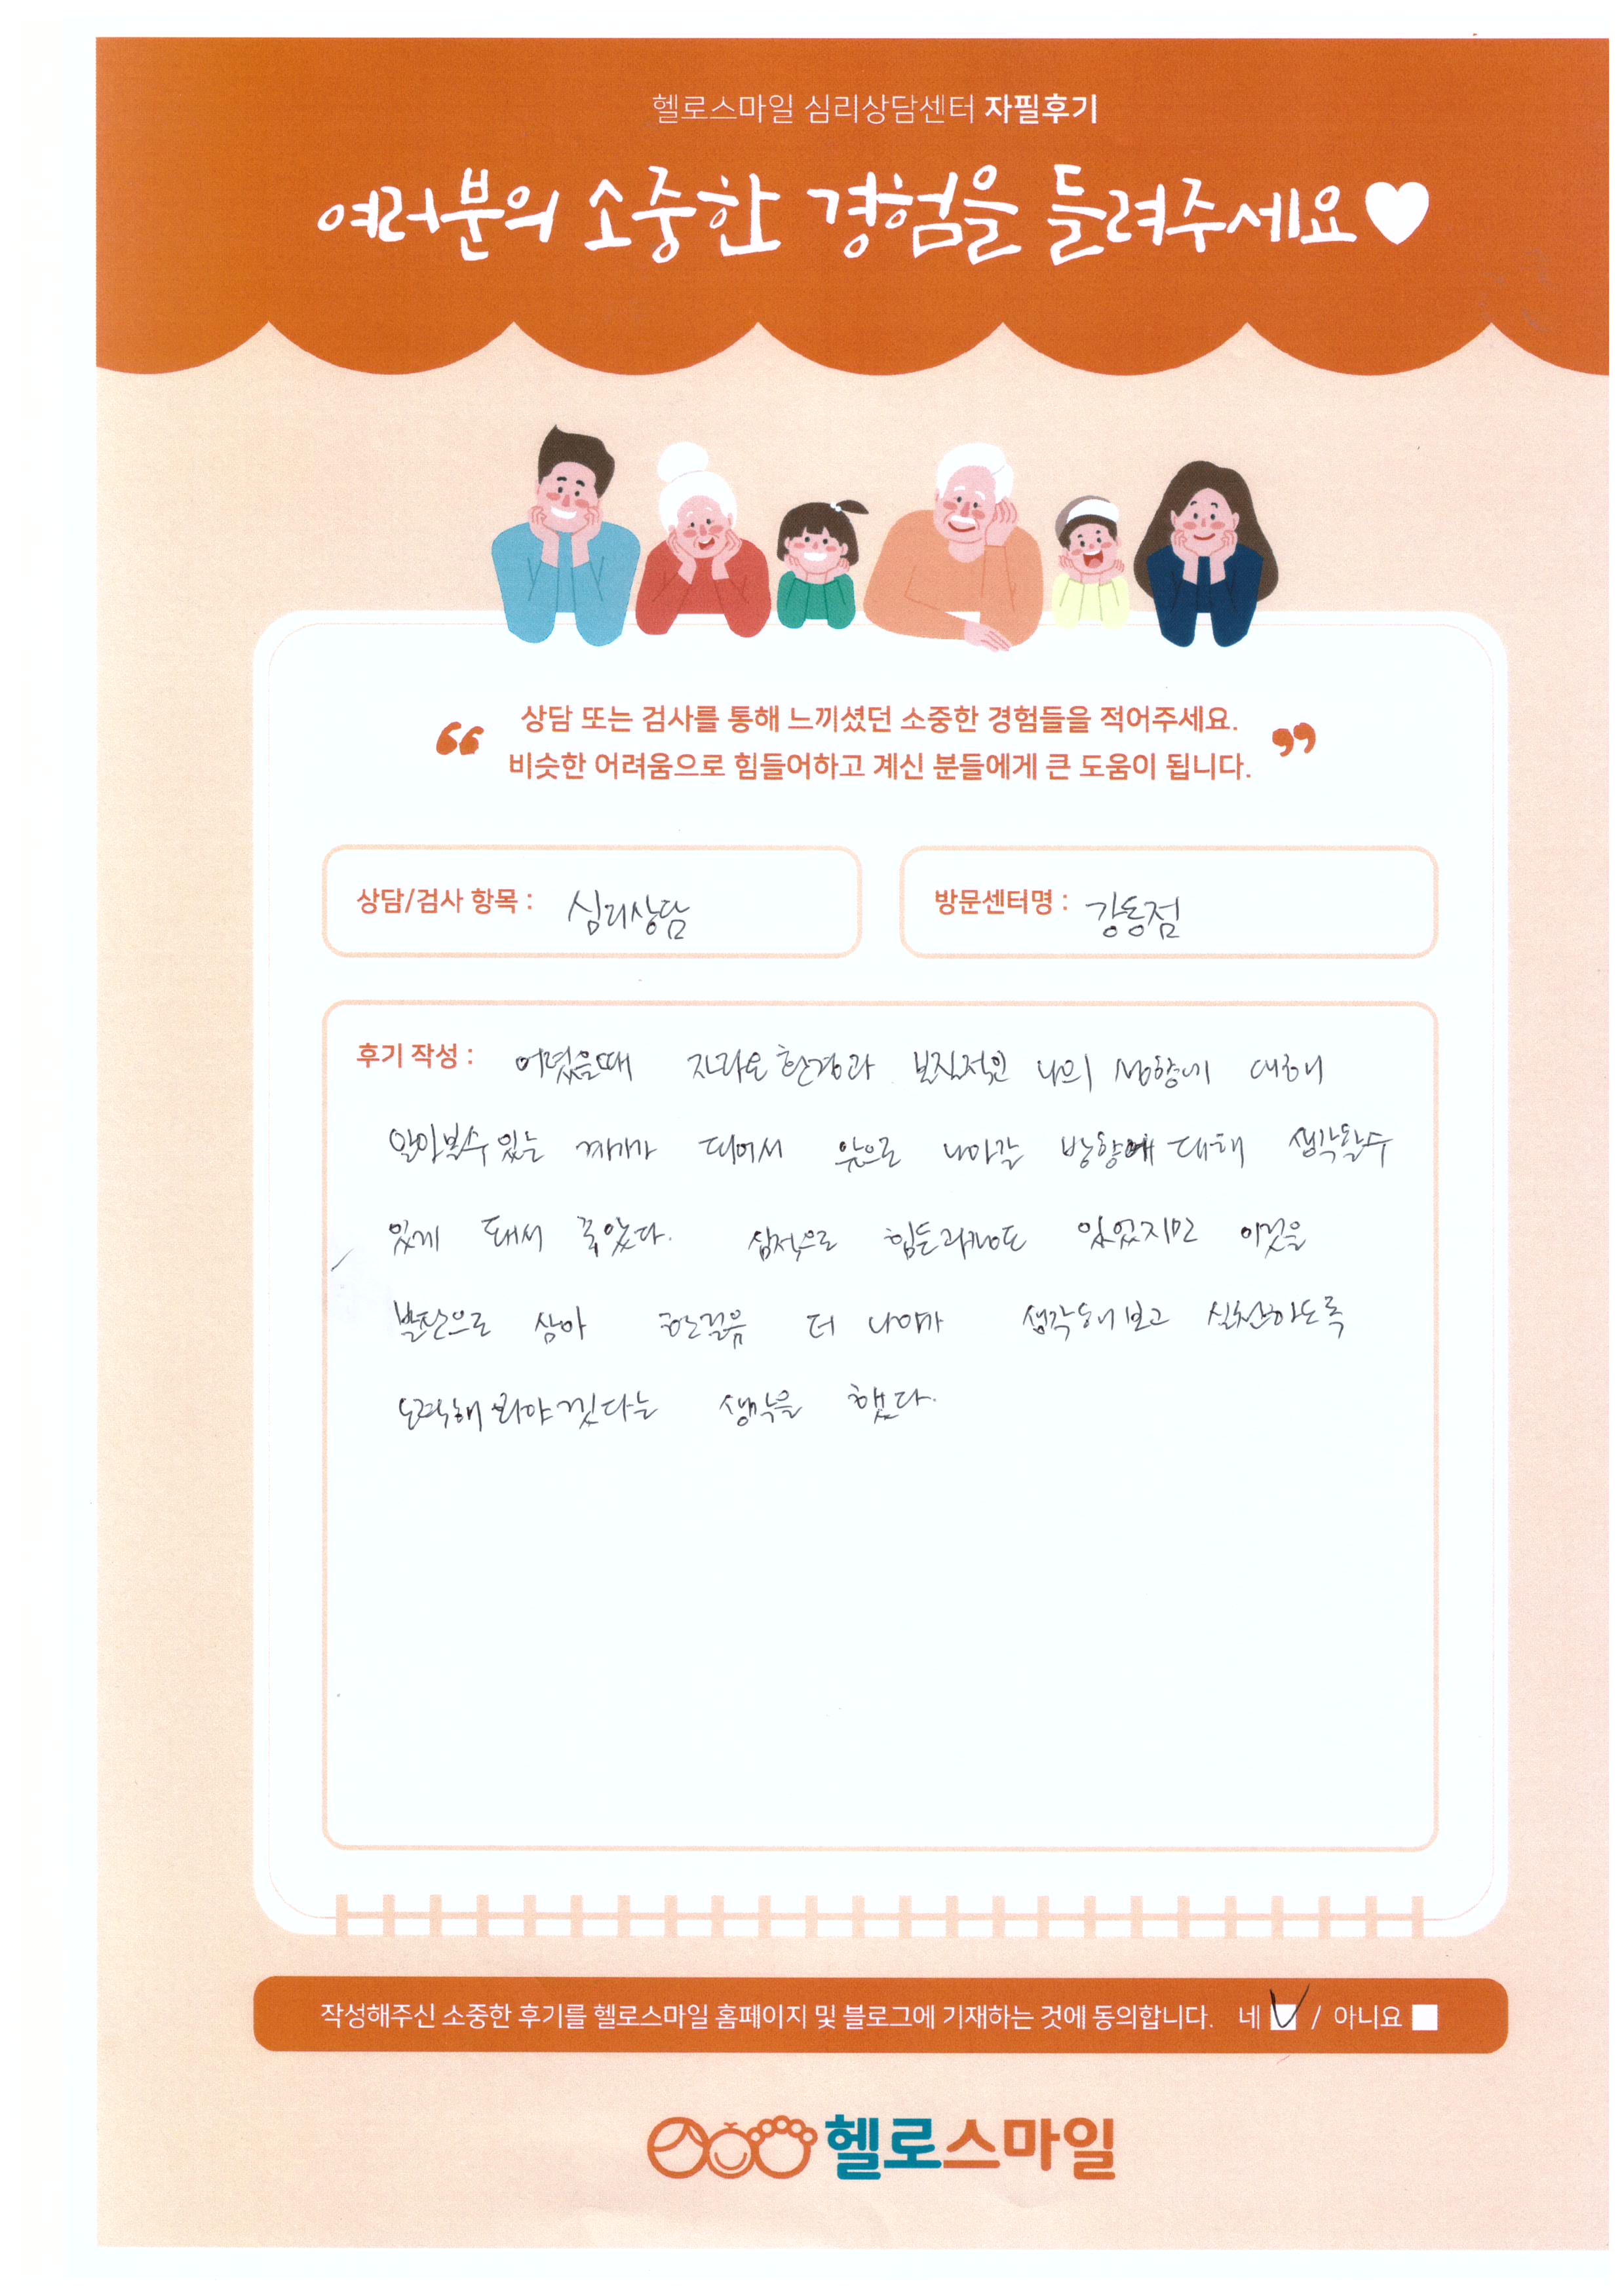 헬로스마일 심리상담센터 자필후기
여러분의 소중한 경험을 들려주세요♥
“ 상담 또는 검사를 통해 느끼셨던 소중한 경험들을 적어주세요. ”
비슷한 어려움으로 힘들어하고 계신 분들에게 큰 도움이 됩니다.
상담/검사 항목 : 심리상담
방문센터명 : 강동점
후기 작성 : 어렸을때 자라온 환경과 본질적인 나의 성향에 대해
알아볼수 있는 계기가 되어서 앞으로 나아갈 방향에 대해 생각할수
있게 돼서 좋았다. 심적으로 힘든과정도 있었지만 이것을
발판으로 삼아 한걸음 더 나아가 생각해보고 실천하도록
노력해 봐야겠다는 생각을 했다.
작성해주신 소중한 후기를 헬로스마일 홈페이지 및 블로그에 기재하는 것에 동의합니다. 네 / 아니요
헬로스마일